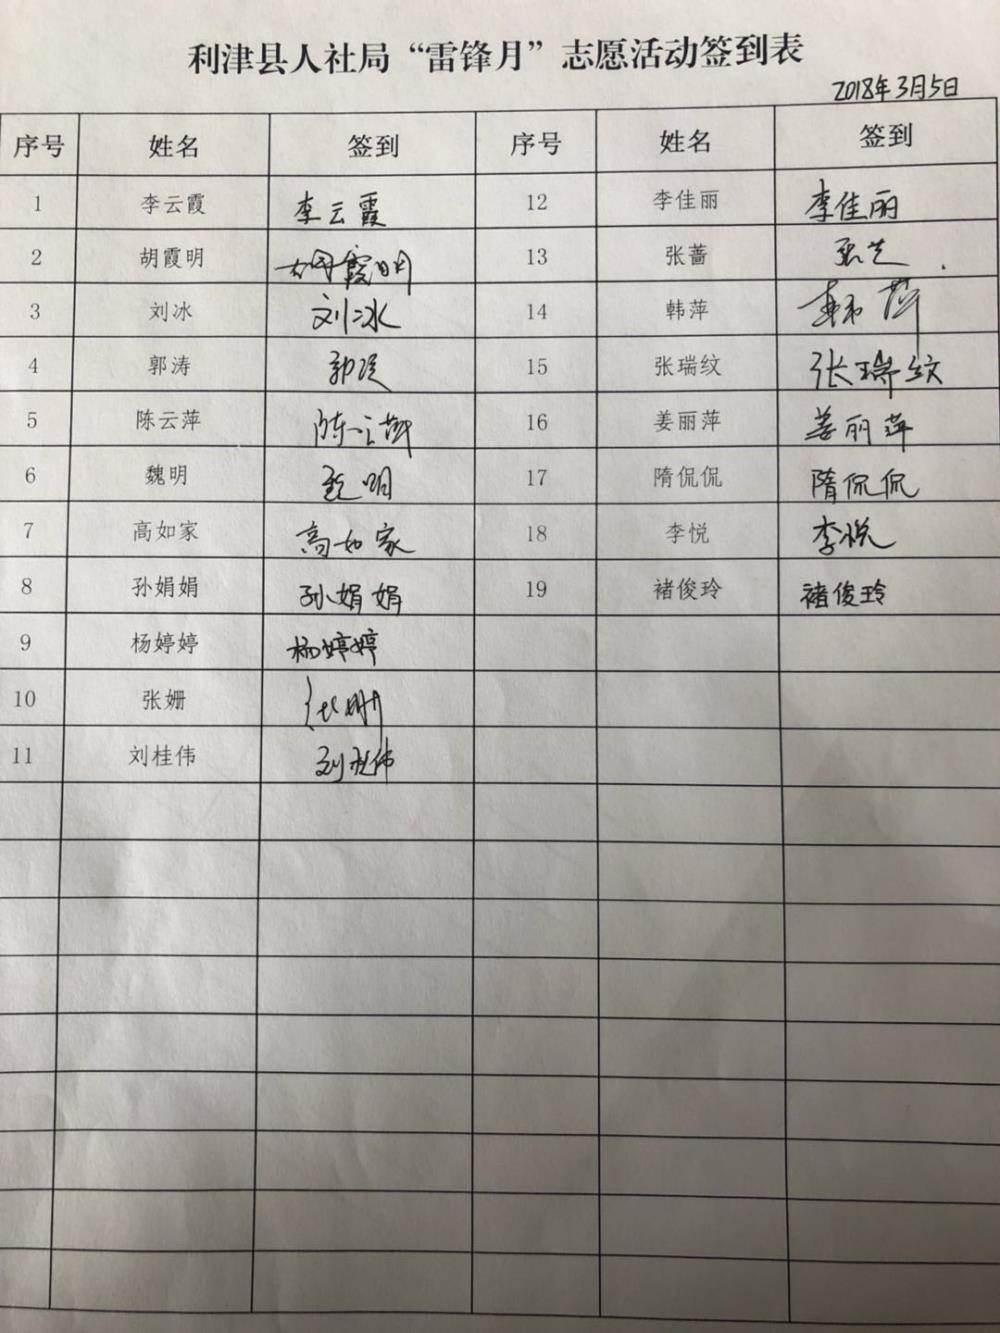 利津县人社局“雷锋月”志愿活动签到表
2018年3月5日
序号 姓名 签到 序号 姓名 签到
1 李云霞 李云霞 12 李佳丽 李佳丽
2 胡霞明 胡霞明 13 张蔷
3 刘冰 刘冰 14 韩萍 韩萍
4 郭涛 郭涛 15 张瑞纹 张瑞纹
5 陈云萍 陈云萍 16 姜丽萍 姜丽萍
6 魏明 魏明 17 隋侃侃 隋侃侃
7 高如家 高如家 18 李悦 李悦
8 孙娟娟 孙娟娟 19 褚俊玲 褚俊玲
9 杨婷婷 杨婷婷
10 张姗 张姗
11 刘桂伟 刘桂伟